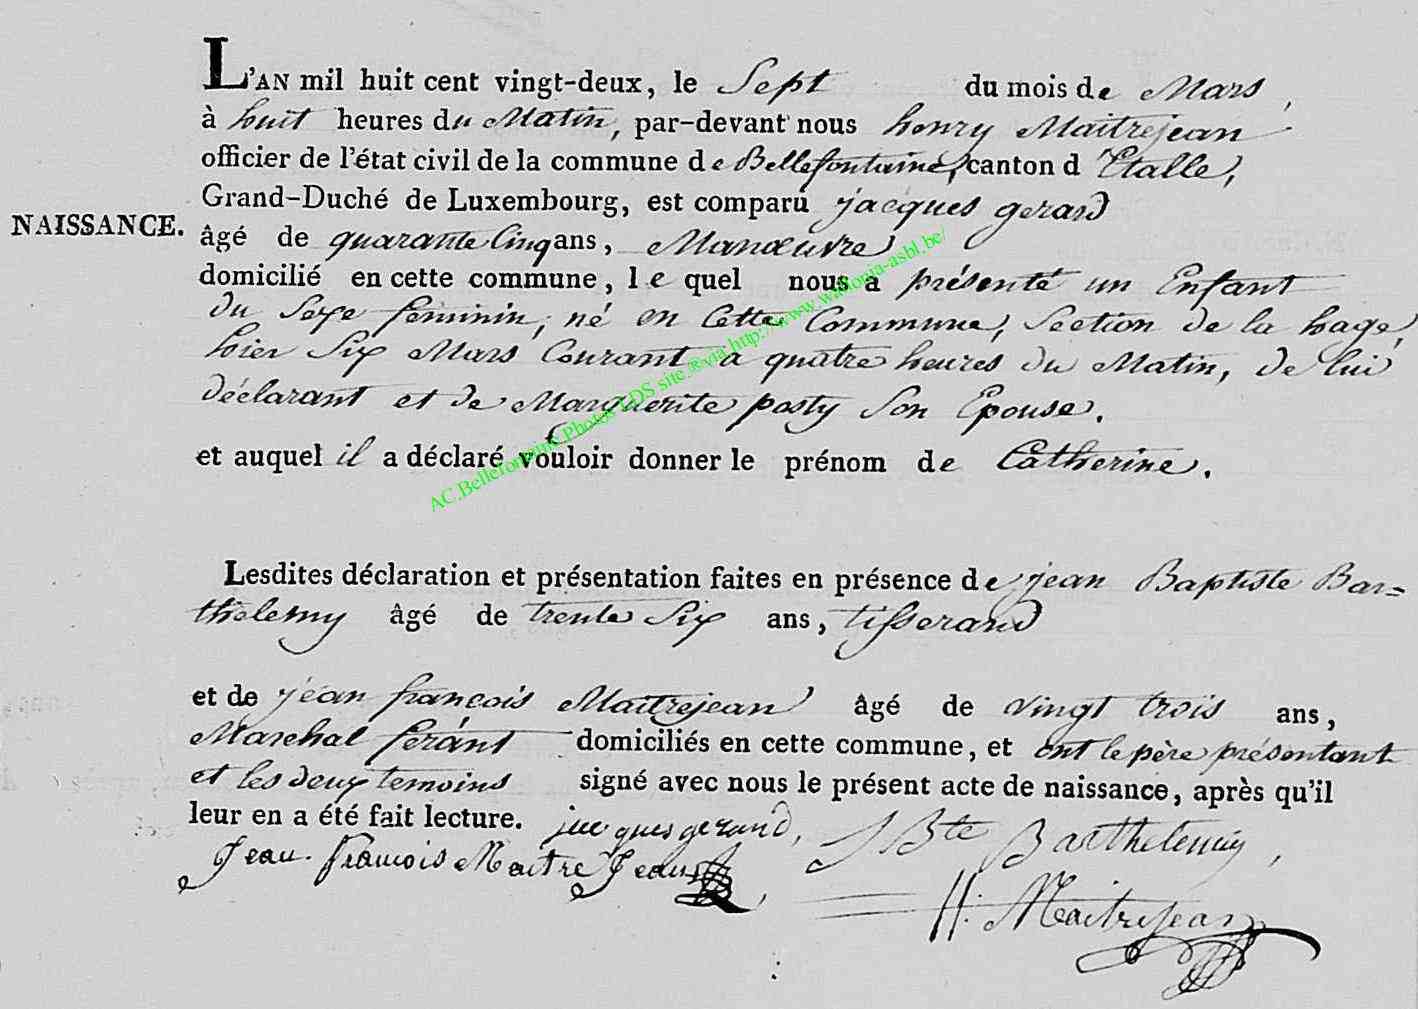 L'AN mil huit cent vingt-deux, le Sept du mois de Mars,
à huit heures du Matin, par-devant nous henry Maitrejean
officier de l'état civil de la commune de Bellefontaine, canton d'Etalle,
Grand-Duché de Luxembourg, est comparu jacques gerard
NAISSANCE.
âgé de quarante Cinq ans, Manœuvre
domicilié en cette commune, le quel nous a présenté un Enfant
du Sexe féminin, né en Cette Commune, Section de la hage,
hier Six Mars Courant a quatre heures du Matin, de lui
déclarant et de Marguerite posty Son Epouse.
et auquel il a déclaré vouloir donner le prénom de Catherine.
AC.Bellefontaine Photos LDS site @via http://www.wallonia-asbl.be/
Lesdites déclaration et présentation faites en présence de jean Baptiste Bar=
thelemy âgé de trente Six ans, tisserand
et de jean françois Maitrejean âgé de vingt trois ans,
Marchal férant domiciliés en cette commune, et ont le père présentant
et les deux temoins signé avec nous le présent acte de naissance, après qu'il
leur en a été fait lecture. jacques gerard, J Bte Barthelemy,
Jean. francois Maitre Jean,
H: Maitrejean